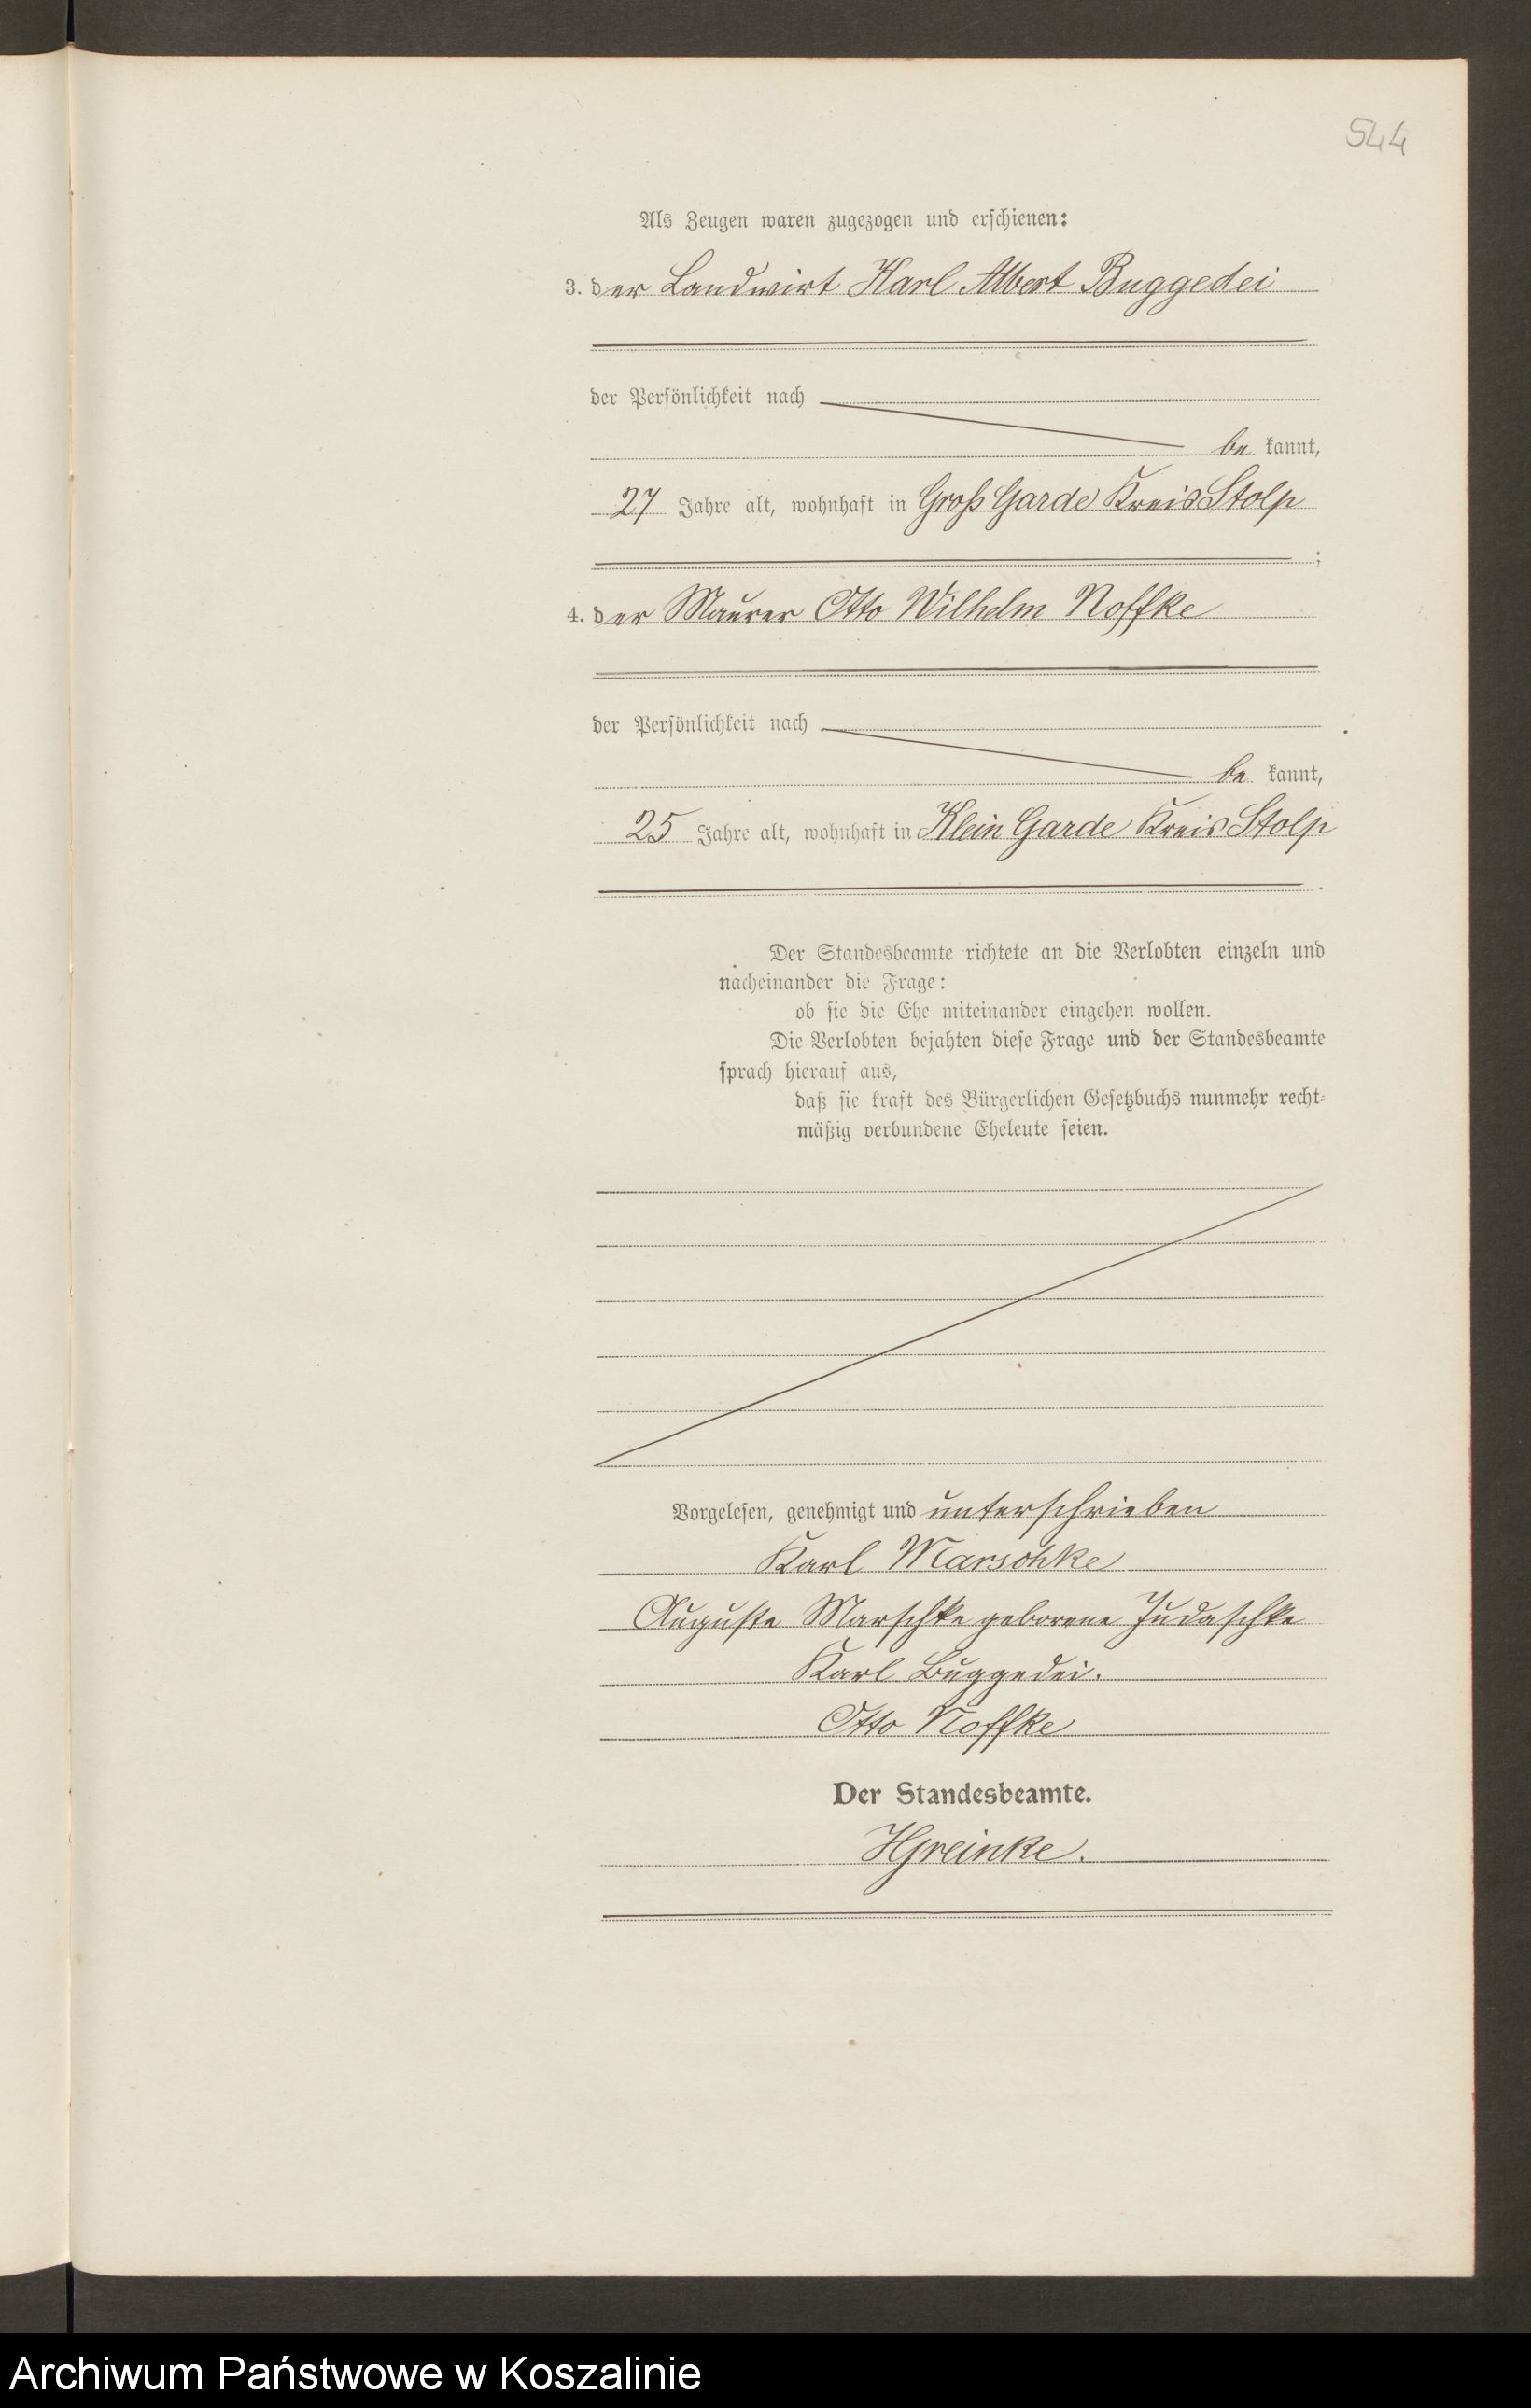 544
Als Zeugen waren zugezogen und erschienen:
3. der Landwirt Karl Albert Buggedei
der Persönlichkeit nach
be kannt,
27 Jahre alt, wohnhaft in Groß Garde Kreis Stolp
;
4. der Maurer Otto Wilhelm Noffke
der Persönlichkeit nach
be kannt,
25 Jahre alt, wohnhaft in Klein Garde Kreis Stolp
.
Der Standesbeamte richtete an die Verlobten einzeln und
nacheinander die Frage:
ob sie die Ehe miteinander eingehen wollen.
Die Verlobten bejahten diese Frage und der Standesbeamte
sprach hierauf aus,
daß sie kraft des Bürgerlichen Gesetzbuchs nunmehr recht-
mäßig verbundene Eheleute seien.
Vorgelesen, genehmigt und unterschrieben
Karl Marschke
Auguste Marschke geborene Judaschke
Karl Buggedei.
Otto Noffke
Der Standesbeamte.
HGreinke.
Archiwum Państwowe w Koszalinie